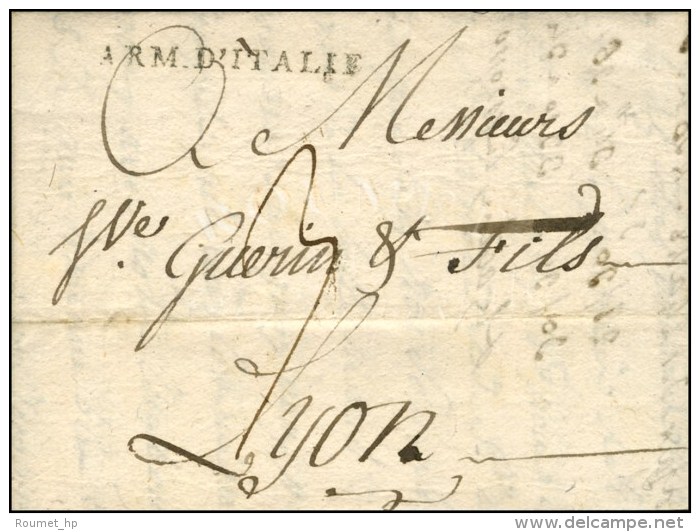 ARM. D'ITALIE
A Messieurs
Vve Guerin & Fils
Lyon
Roumet_hp
delcampe.net